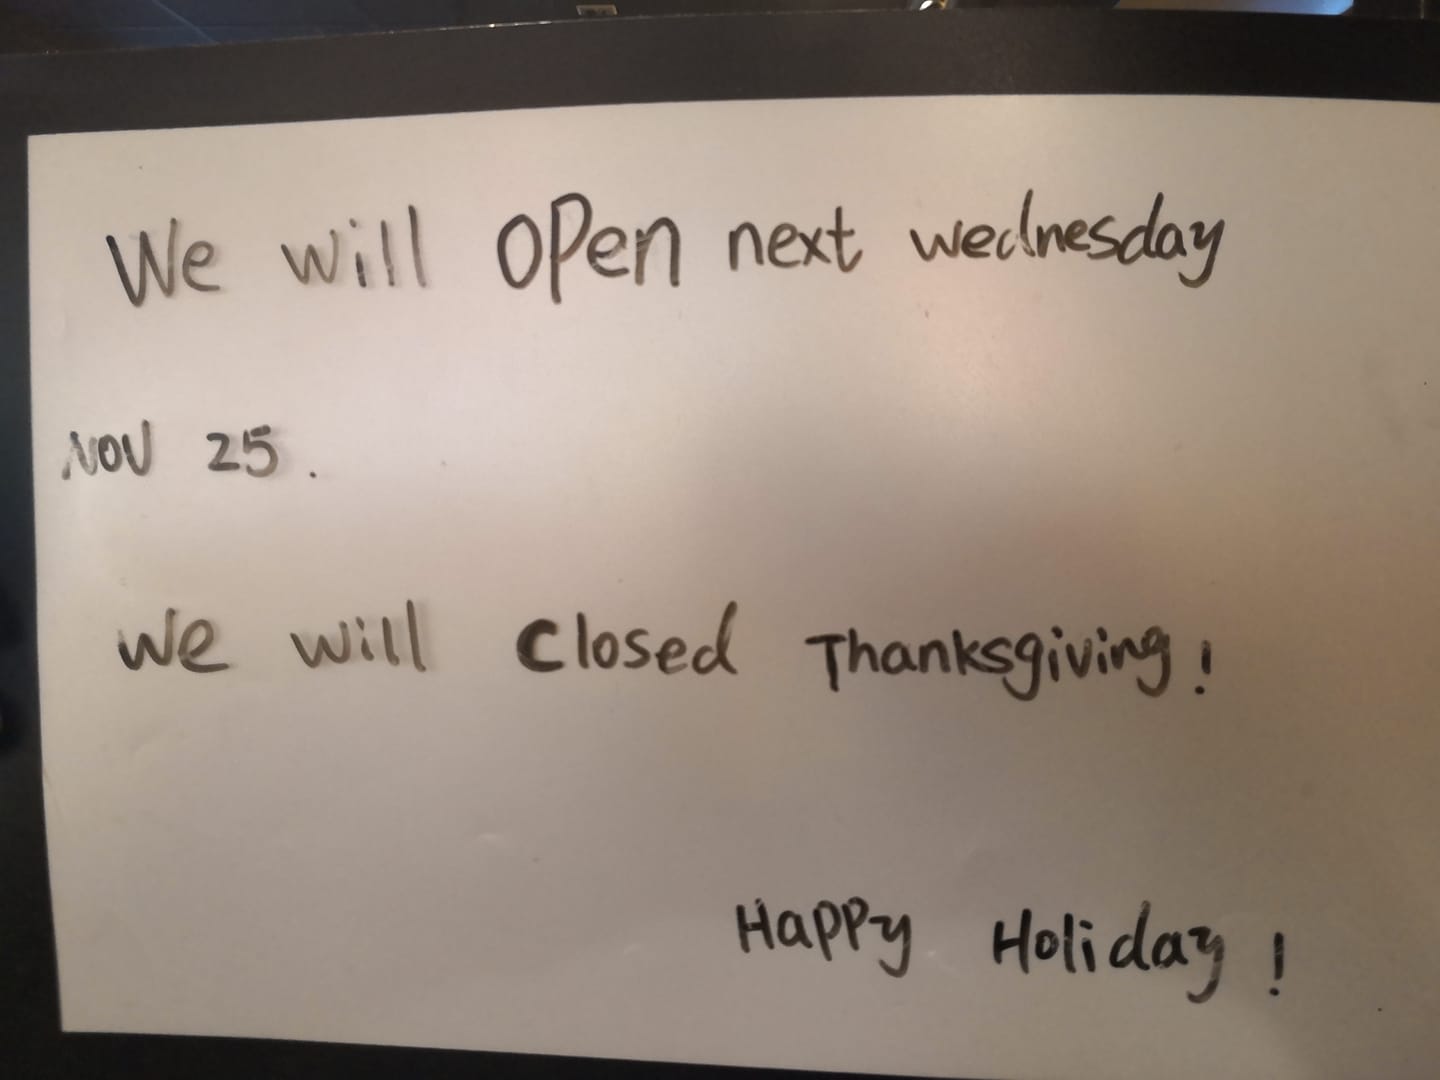 We will open next wednesday
NOV 25.
We will closed Thanksgiving!
Happy Holiday!